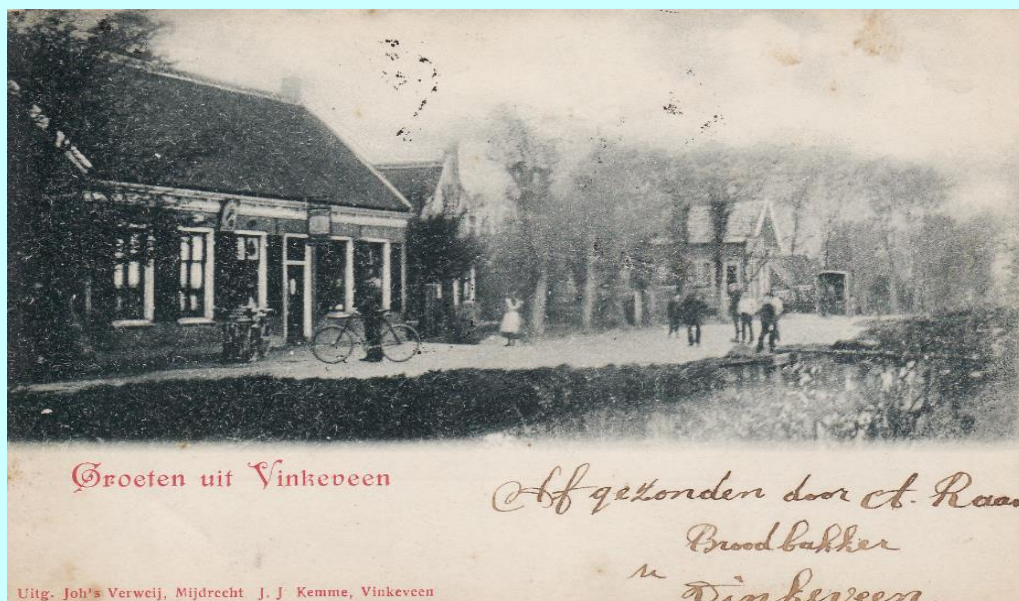 Groeten uit Vinkeveen
Afgezonden door A.
Broodbakker
Vinkeveen
Uitg. Joh's Verweij, Mijdrecht J. J Kemme, Vinkeveen